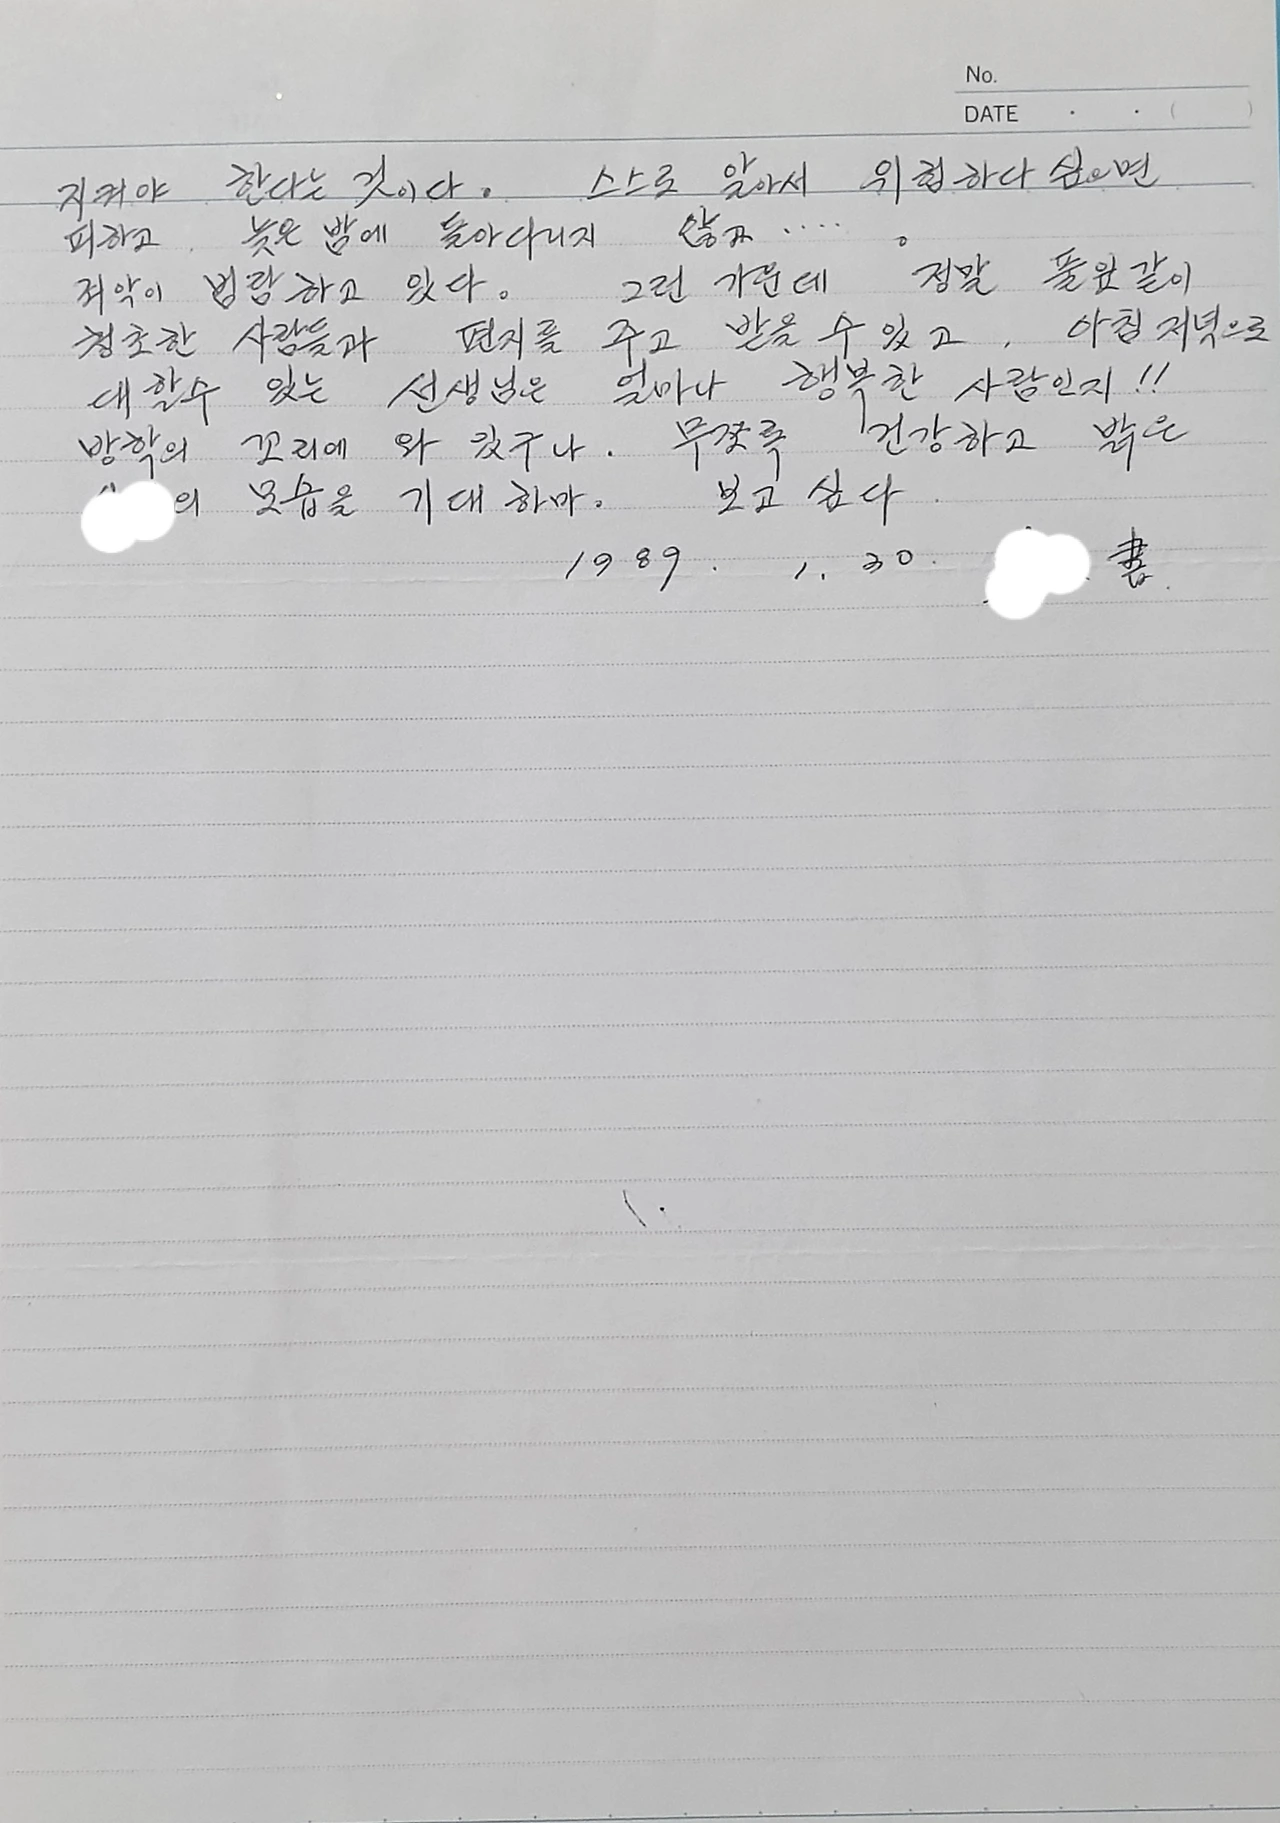 No.
DATE . . ( )
지켜야 한다는 것이다. 스스로 알아서 위험하다 싶으면
피하고, 늦은 밤에 돌아다니지 않고 ‥‥ .
죄악이 범람하고 있다. 그런 가운데 정말 풀잎같이
청초한 사람들과 편지를 주고 받을 수 있고, 아침 저녁으로
대할수 있는 선생님은 얼마나 행복한 사람인지!!
방학의 꼬리에 와 있구나. 무쪼록 건강하고 밝은
의 모습을 기대하마. 보고 싶다.
1989. 1. 30. 書